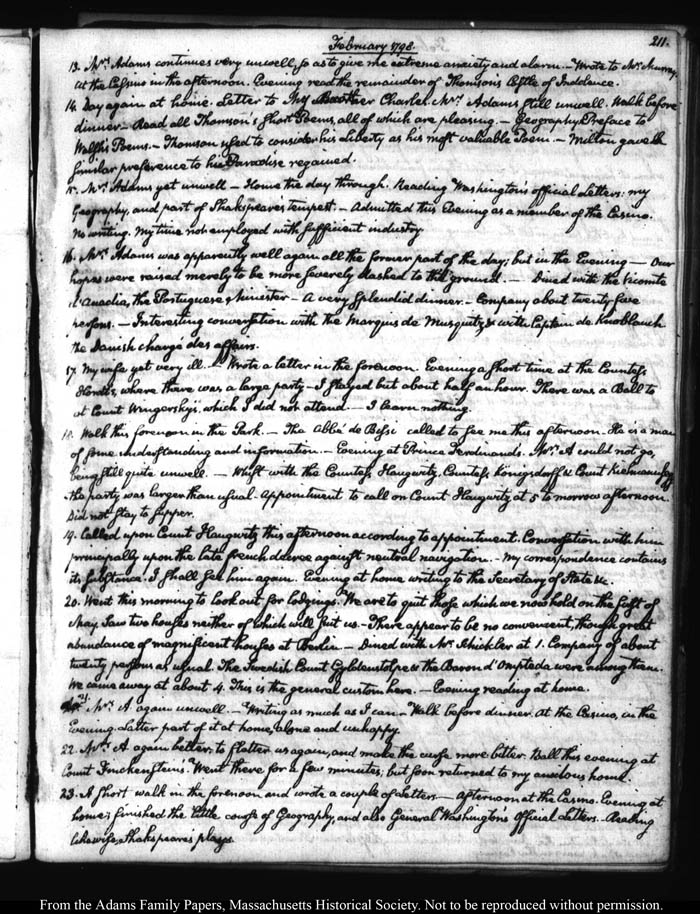 February 1798.
211.
13. Mrs. Adams continues very unwell, so as to give me extreme anxiety and alarm. — Wrote to Mr. Murray.
At the Casino in the afternoon. Evening read the remainder of Thomson's Castle of Indolence.
14. Day again at home. Letter to my Brother Charles. Mrs. Adams still unwell. Walk before
dinner — Read all Thomson's short Poems, all of which are pleasing. — Geography, Preface to
Poems. — Thomson used to consider his Liberty as his most valuable Poem. — Milton gave a
similar preference to his Paradise regained.
15. Mrs. Adams yet unwell — Home the day through. Reading Washington's official Letters; my
Geography, and part of Shakspeare's tempest. — Admitted this Evening as a member of the Casino.
No writing. My time not employed with sufficient industry.
16. Mrs. Adams was apparently well again all the former part of the day; but in the Evening — Our
hopes were raised merely to be more severely dashed to the ground. — Dined with the Vicomte
d'Anadia, the Portuguese Minister — A very splendid dinner. — Company about twenty five
persons. — Interesting conversation with the Marquis de Musquitz, & with Captain de Knoblauch
the Danish chargé des affairs.
17. My wife yet very ill. — Wrote a letter in the forenoon. Evening a short time at the Countess
where there was a large party — I stayed but about half an hour. There was a Ball to
at Count which I did not attend. — I learn nothing.
18. Walk this forenoon in the Park. — The Abbé de called to see me this afternoon. He is a man
of some understanding and information. — Evening at Prince Ferdinands. Mrs. A could not go,
being still quite unwell. — Whist with the Countess Haugwitz, Countess & Count
the party was larger than usual. Appointment to call on Count Haugwitz at 5 to morrow afternoon.
Did not stay to supper.
19. Called upon Count Haugwitz this afternoon according to appointment. Conversation with him
principally upon the late french decree against neutral navigation. — My correspondence contains
its substance. I shall see him again. Evening at home writing to the Secretary of State &c.
20. Went this morning to look out for lodgings. We are to quit those which we now hold on the first of
May. Saw two houses neither of which will suit us. — There appear to be no convenient, though great
abundance of magnificent houses at Berlin — Dined with Mr. Schickler at 1. Company of about
twenty persons as usual. The Swedish Count Gyldenstolpe & the Baron d'Ompteda were among them.
We came away at about 4. This is the general custom here. — Evening reading at home.
21. Mrs. A again unwell. — Writing as much as I can — Walk before dinner. At the Casino, in the
Evening. Latter part of it at home, alone and unhappy.
22. Mrs. A. again better; to flatter us again, and make the curse more bitter. Ball this evening at
Count Finckenstein's. Went there for a few minutes; but soon returned to my anxious home.
23. A short walk in the forenoon and wrote a couple of Letters — afternoon at the Casino. Evening at
home; finished the little course of Geography, and also General Washingtons Official Letters. Reading
likewise, Shakspeare's plays.
From the Adams Family Papers, Massachusetts Historical Society. Not to be reproduced without permission.